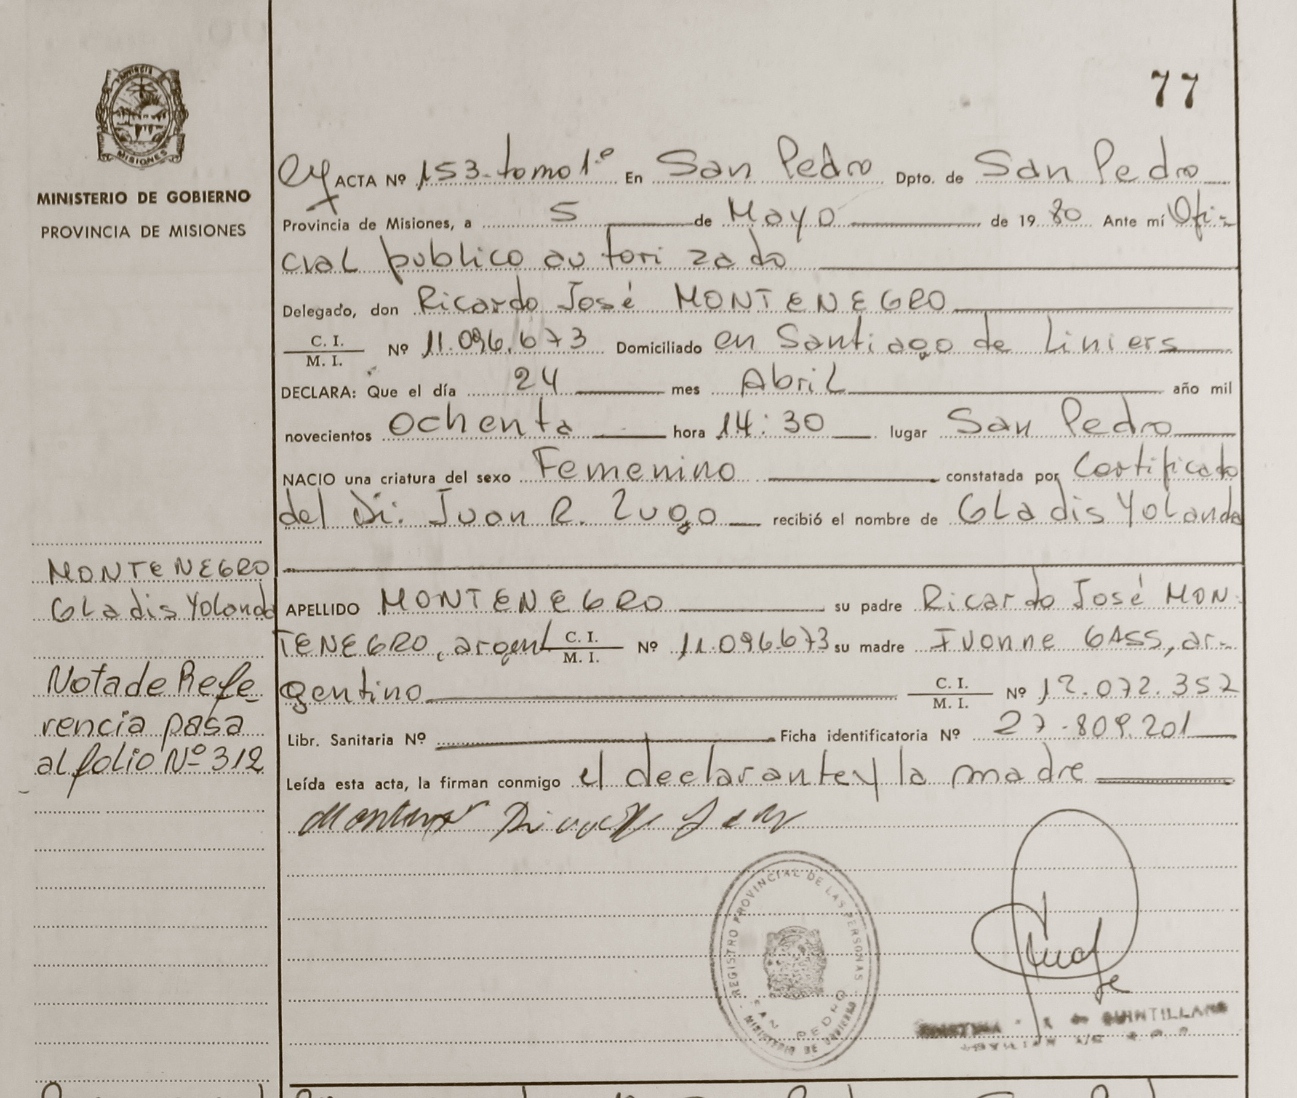 77
PROVINCIA DE
MISIONES
MINISTERIO DE GOBIERNO
PROVINCIA DE MISIONES
ACTA Nº 153-tomo 1º En San Pedro Dpto. de San Pedro
Provincia de Misiones, a 5 de Mayo de 19 80 Ante mí Ofi-
cial publico autorizado
Delegado, don Ricardo José MONTENEGRO
C. I.
M. I. Nº 11.096.673 Domiciliado en Santiago de Liniers
DECLARA: Que el día 24 mes Abril año mil
novecientos ochenta hora 14:30 lugar San Pedro
NACIO una criatura del sexo Femenino constatada por Certificado
del Dr. Juan R. Zugo recibió el nombre de Gladis Yolanda
APELLIDO MONTENEGRO su padre Ricardo José MON-
TENEGRO, argent C. I.
M. I. Nº 11.096.673 su madre Ivonne GASS, ar-
gentino C. I.
M. I. Nº 12.072.352
Libr. Sanitaria Nº Ficha identificatoria Nº 27-809.201
Leída esta acta, la firman conmigo el declarante y la madre
MONTENEGRO
Gladis Yolanda
Nota de Refe-
rencia pasa
al folio Nº 312
REGISTRO PROVINCIAL DE LAS PERSONAS
SAN PEDRO
MINISTERIO DE GOBIERNO
QUINTILLANA